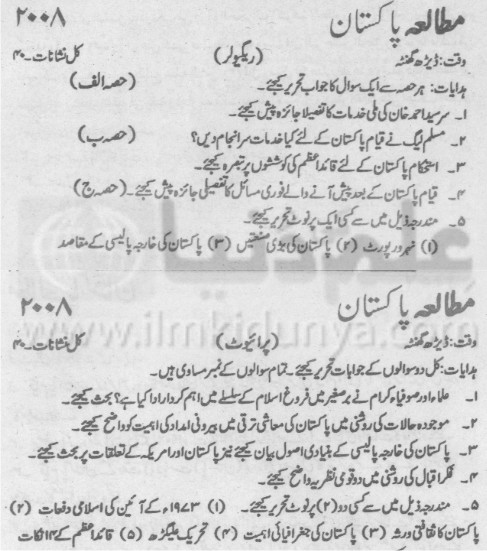 مطالعہ پاکستان ۲۰۰۸
وقت: ڈیڑھ گھنٹہ (ریگولر) کل نشانات۔۴۰
ہدایات: ہر حصہ سے ایک سوال کا جواب تحریر کیجئے۔ (حصہ الف)
۱۔ سر سید احمد خان کی ملی خدمات کا تفصیلاً جائزہ پیش کیجئے۔
۲۔ مسلم لیگ نے قیام پاکستان کے لئے کیا خدمات سرانجام دیں؟ (حصہ ب)
۳۔ استحکام پاکستان کے لئے قائداعظم کی کوششوں پر تبصرہ کیجئے۔
۴۔ قیام پاکستان کے بعد پیش آنے والے فوری مسائل کا تفصیلی جائزہ پیش کیجئے۔ (حصہ ج)
۵۔ مندرجہ ذیل میں سے کسی ایک پر نوٹ تحریر کیجئے۔
(۱) نہرو رپورٹ (۲) پاکستان کی بڑی صنعتیں (۳) پاکستان کی خارجہ پالیسی کے مقاصد
علم کی دنیا
مطالعہ پاکستان ۲۰۰۸
www.ilmkidunya.com
وقت: ڈیڑھ گھنٹہ (پرائیوٹ) کل نشانات۔۴۰
ہدایات: کل دو سوالوں کے جوابات تحریر کیجئے۔ تمام سوالوں کے نمبر مساوی ہیں۔
۱۔ علماء اور صوفیاء کرام نے برصغیر میں فروغ اسلام کے سلسلے میں اہم کردار ادا کیا ہے؟ بحث کیجئے۔
۲۔ موجودہ حالات کی روشنی میں پاکستان کی معاشی ترقی میں بیرونی امداد کی اہمیت کو واضح کیجئے۔
۳۔ پاکستان کی خارجہ پالیسی کے بنیادی اصول بیان کیجئے نیز پاکستان اور امریکہ کے تعلقات پر بحث کیجئے۔
۴۔ فکر اقبال کی روشنی میں دو قومی نظریہ واضح کیجئے۔
۵۔ مندرجہ ذیل میں سے کسی دو (۲) پر نوٹ تحریر کیجئے۔ (۱) ۱۹۷۳ء کے آئین کی اسلامی دفعات (۲)
پاکستان کا ثقافتی ورثہ (۳) پاکستان کی جغرافیائی اہمیت (۴) تحریک علیگڑھ (۵) قائداعظم کے ۱۴ نکات